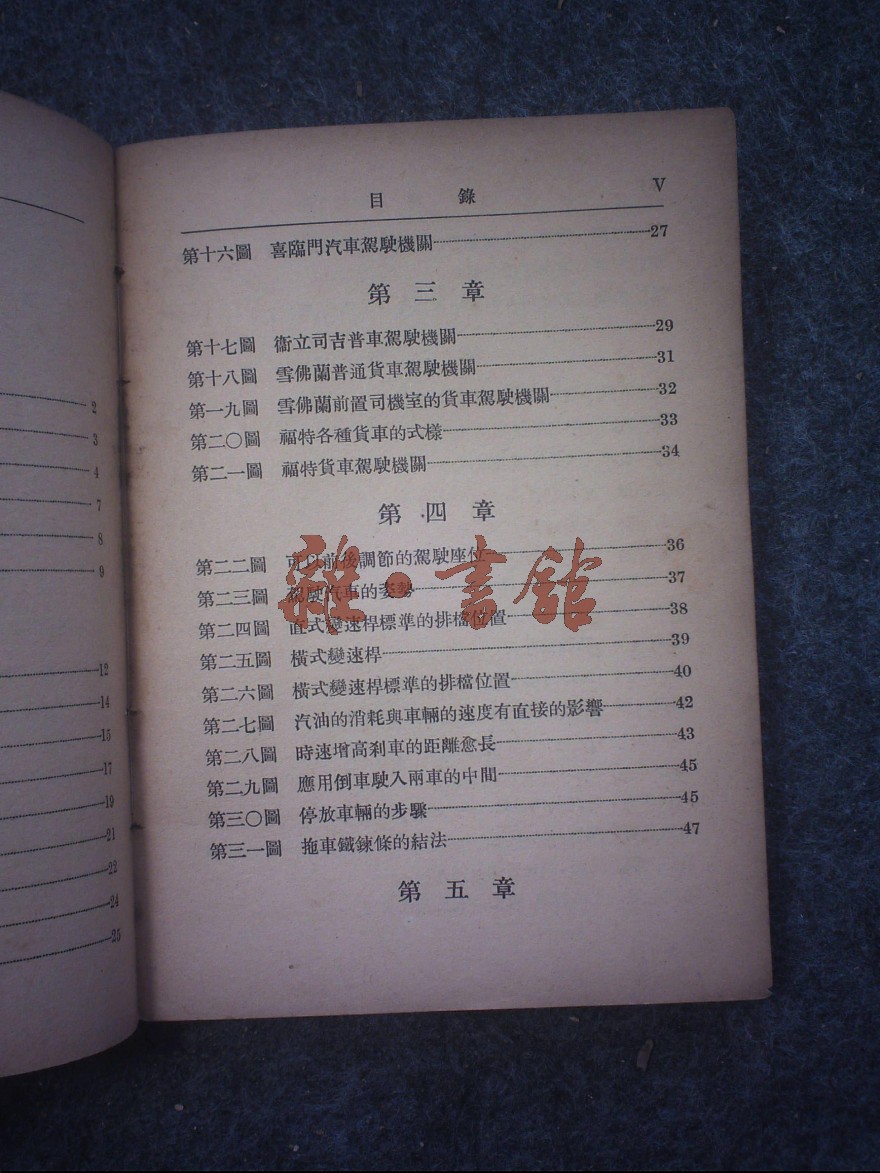 目錄 V
第十六圖 喜臨門汽車駕駛機關 27
第三章
第十七圖 衞立司吉普車駕駛機關 29
第十八圖 雪佛蘭普通貨車駕駛機關 31
第一九圖 雪佛蘭前置司機室的貨車駕駛機關 32
第二〇圖 福特各種貨車的式樣 33
第二一圖 福特貨車駕駛機關 34
第四章
第二二圖 可以前後調節的駕駛座位 36
第二三圖 駕駛汽車的姿勢 37
第二四圖 直式變速桿標準的排檔位置 38
第二五圖 橫式變速桿 39
第二六圖 橫式變速桿標準的排檔位置 40
第二七圖 汽油的消耗與車輛的速度有直接的影響 42
第二八圖 時速增高刹車的距離愈長 43
第二九圖 應用倒車駛入兩車的中間 45
第三〇圖 停放車輛的步驟 45
第三一圖 拖車鐵鍊條的結法 47
第五章
雜·書館
2
3
4
7
8
9
12
14
15
17
19
21
22
24
25